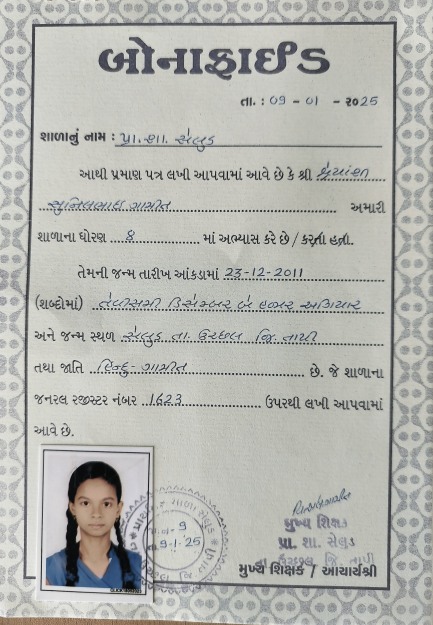 બોનાફાઈડ
તા. : ૦૭ - ૦૧ - ૨૦25
શાળાનું નામ : પ્રા. શા. સેલુડ
આથી પ્રમાણ પત્ર લખી આપવામાં આવે છે કે શ્રી શ્રેયાંશી
સુનિલભાઇ ગામીત અમારી
શાળાના ધોરણ ૪ માં અભ્યાસ કરે છે / કરતા હતા.
તેમની જન્મ તારીખ આંકડામાં 23-12-2011
(શબ્દોમાં) તેવીસમી ડિસેમ્બર બે હજાર અગિયાર
અને જન્મ સ્થળ સેલુડ તા. ઉચ્છલ જિ. તાપી
તથા જાતિ હિન્દુ - ગામીત છે. જે શાળાના
જનરલ રજીસ્ટર નંબર 1623 ઉપરથી લખી આપવામાં
આવે છે.
9
9-1-25
મુખ્ય શિક્ષક
પ્રા. શા. સેલુડ
તા. ઉચ્છલ, જિ. તાપી
મુખ્ય શિક્ષક / આચાર્યશ્રી